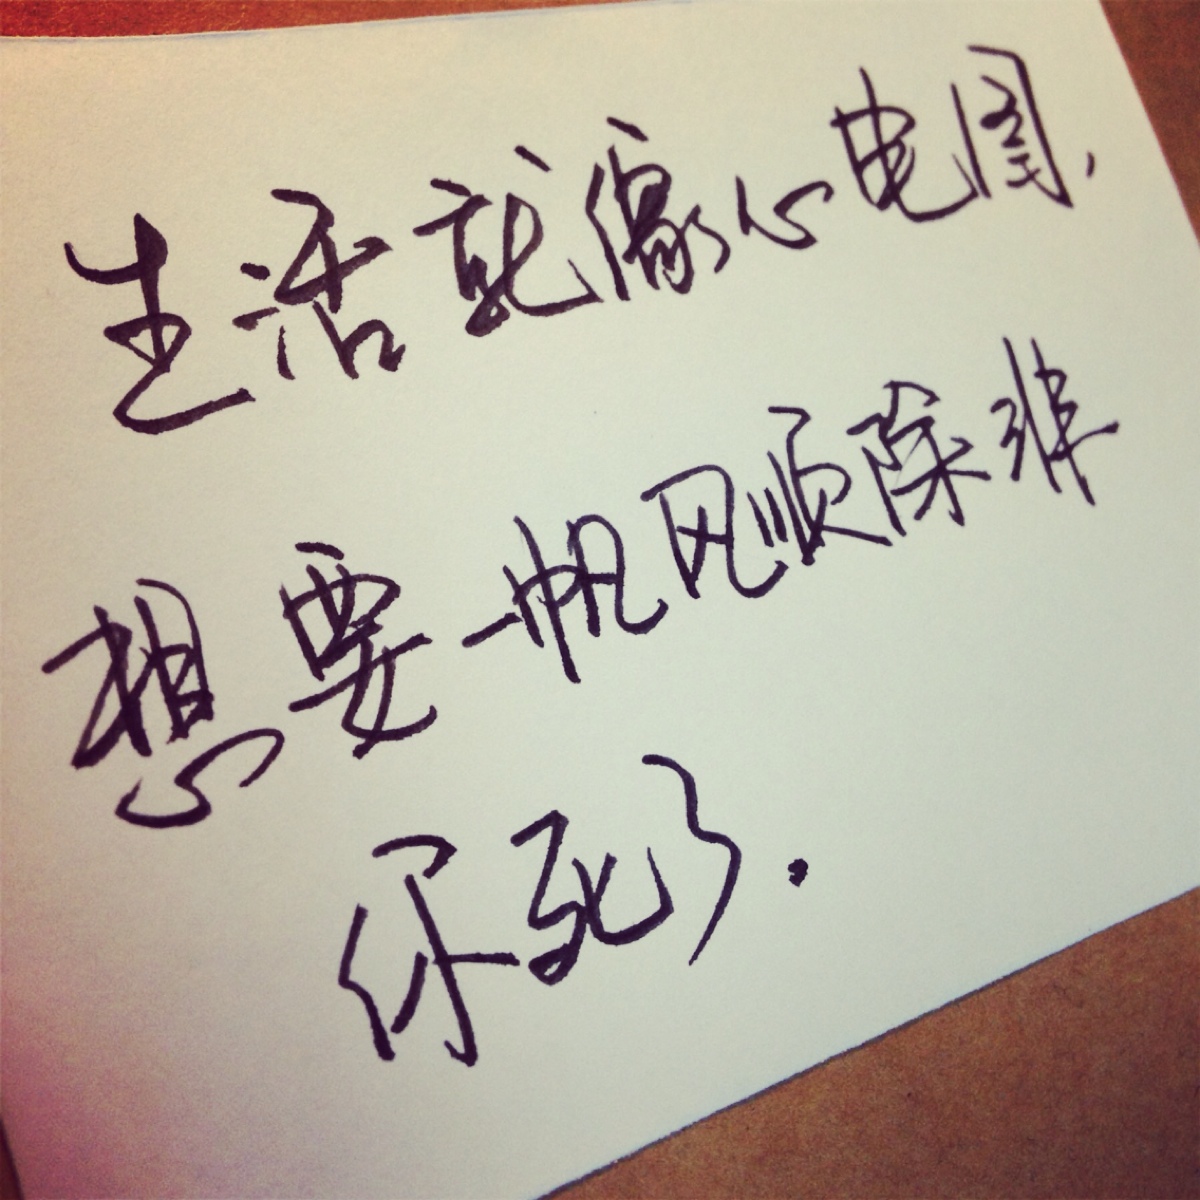 生活就像心电图,
想要一帆风顺除非
你死了.